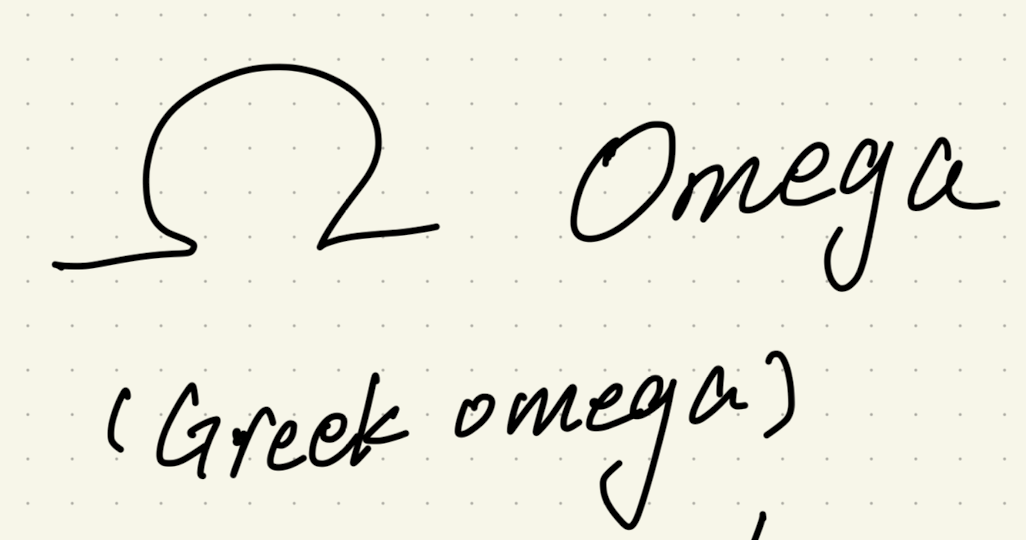 Ω Omega
(Greek omega)